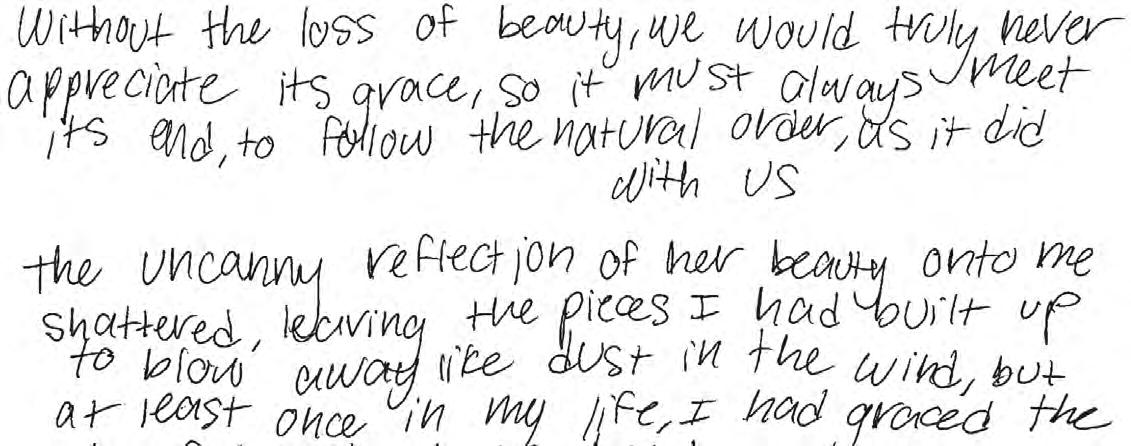 Without the loss of beauty, we would truly never
appreciate its grace, so it must always meet
its end, to follow the natural order, as it did
with us
the uncanny reflection of her beauty onto me
shattered, leaving the pieces I had built up
to blow away like dust in the wind, but
at least once in my life, I had graced the